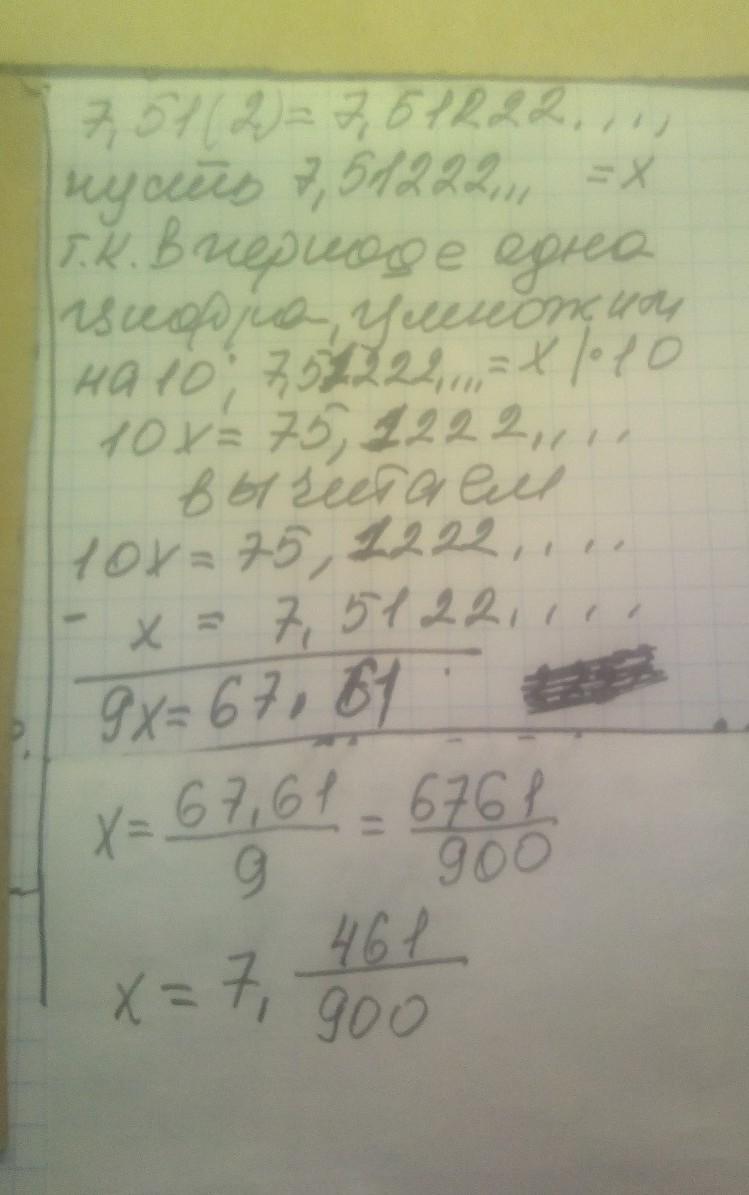 7,51(2)=7,51222....,
пусть 7,51222,,, =х
т.к. в периоде одна
цифра, умножим
на 10; 7,51222,...=х |·10
10х=75,1222,,..
вычитаем
10х=75,1222,...
- х = 7,5122,...
9х=67,61
х= 67,61/9 = 6761/900
х=7, 461/900